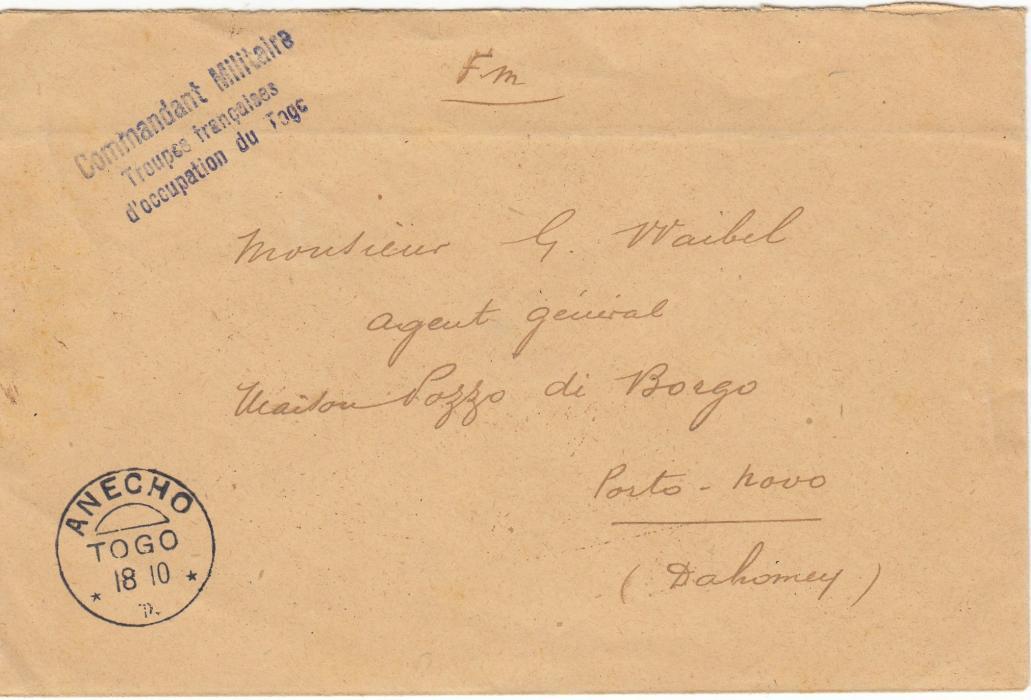 Commandant Militaire
Troupes françaises
d'occupation du Togo
Fm
Monsieur G. Waibel
Agent général
Maison Pozzo di Borgo
Porto-Novo
(Dahomey)
ANECHO
TOGO
18 10